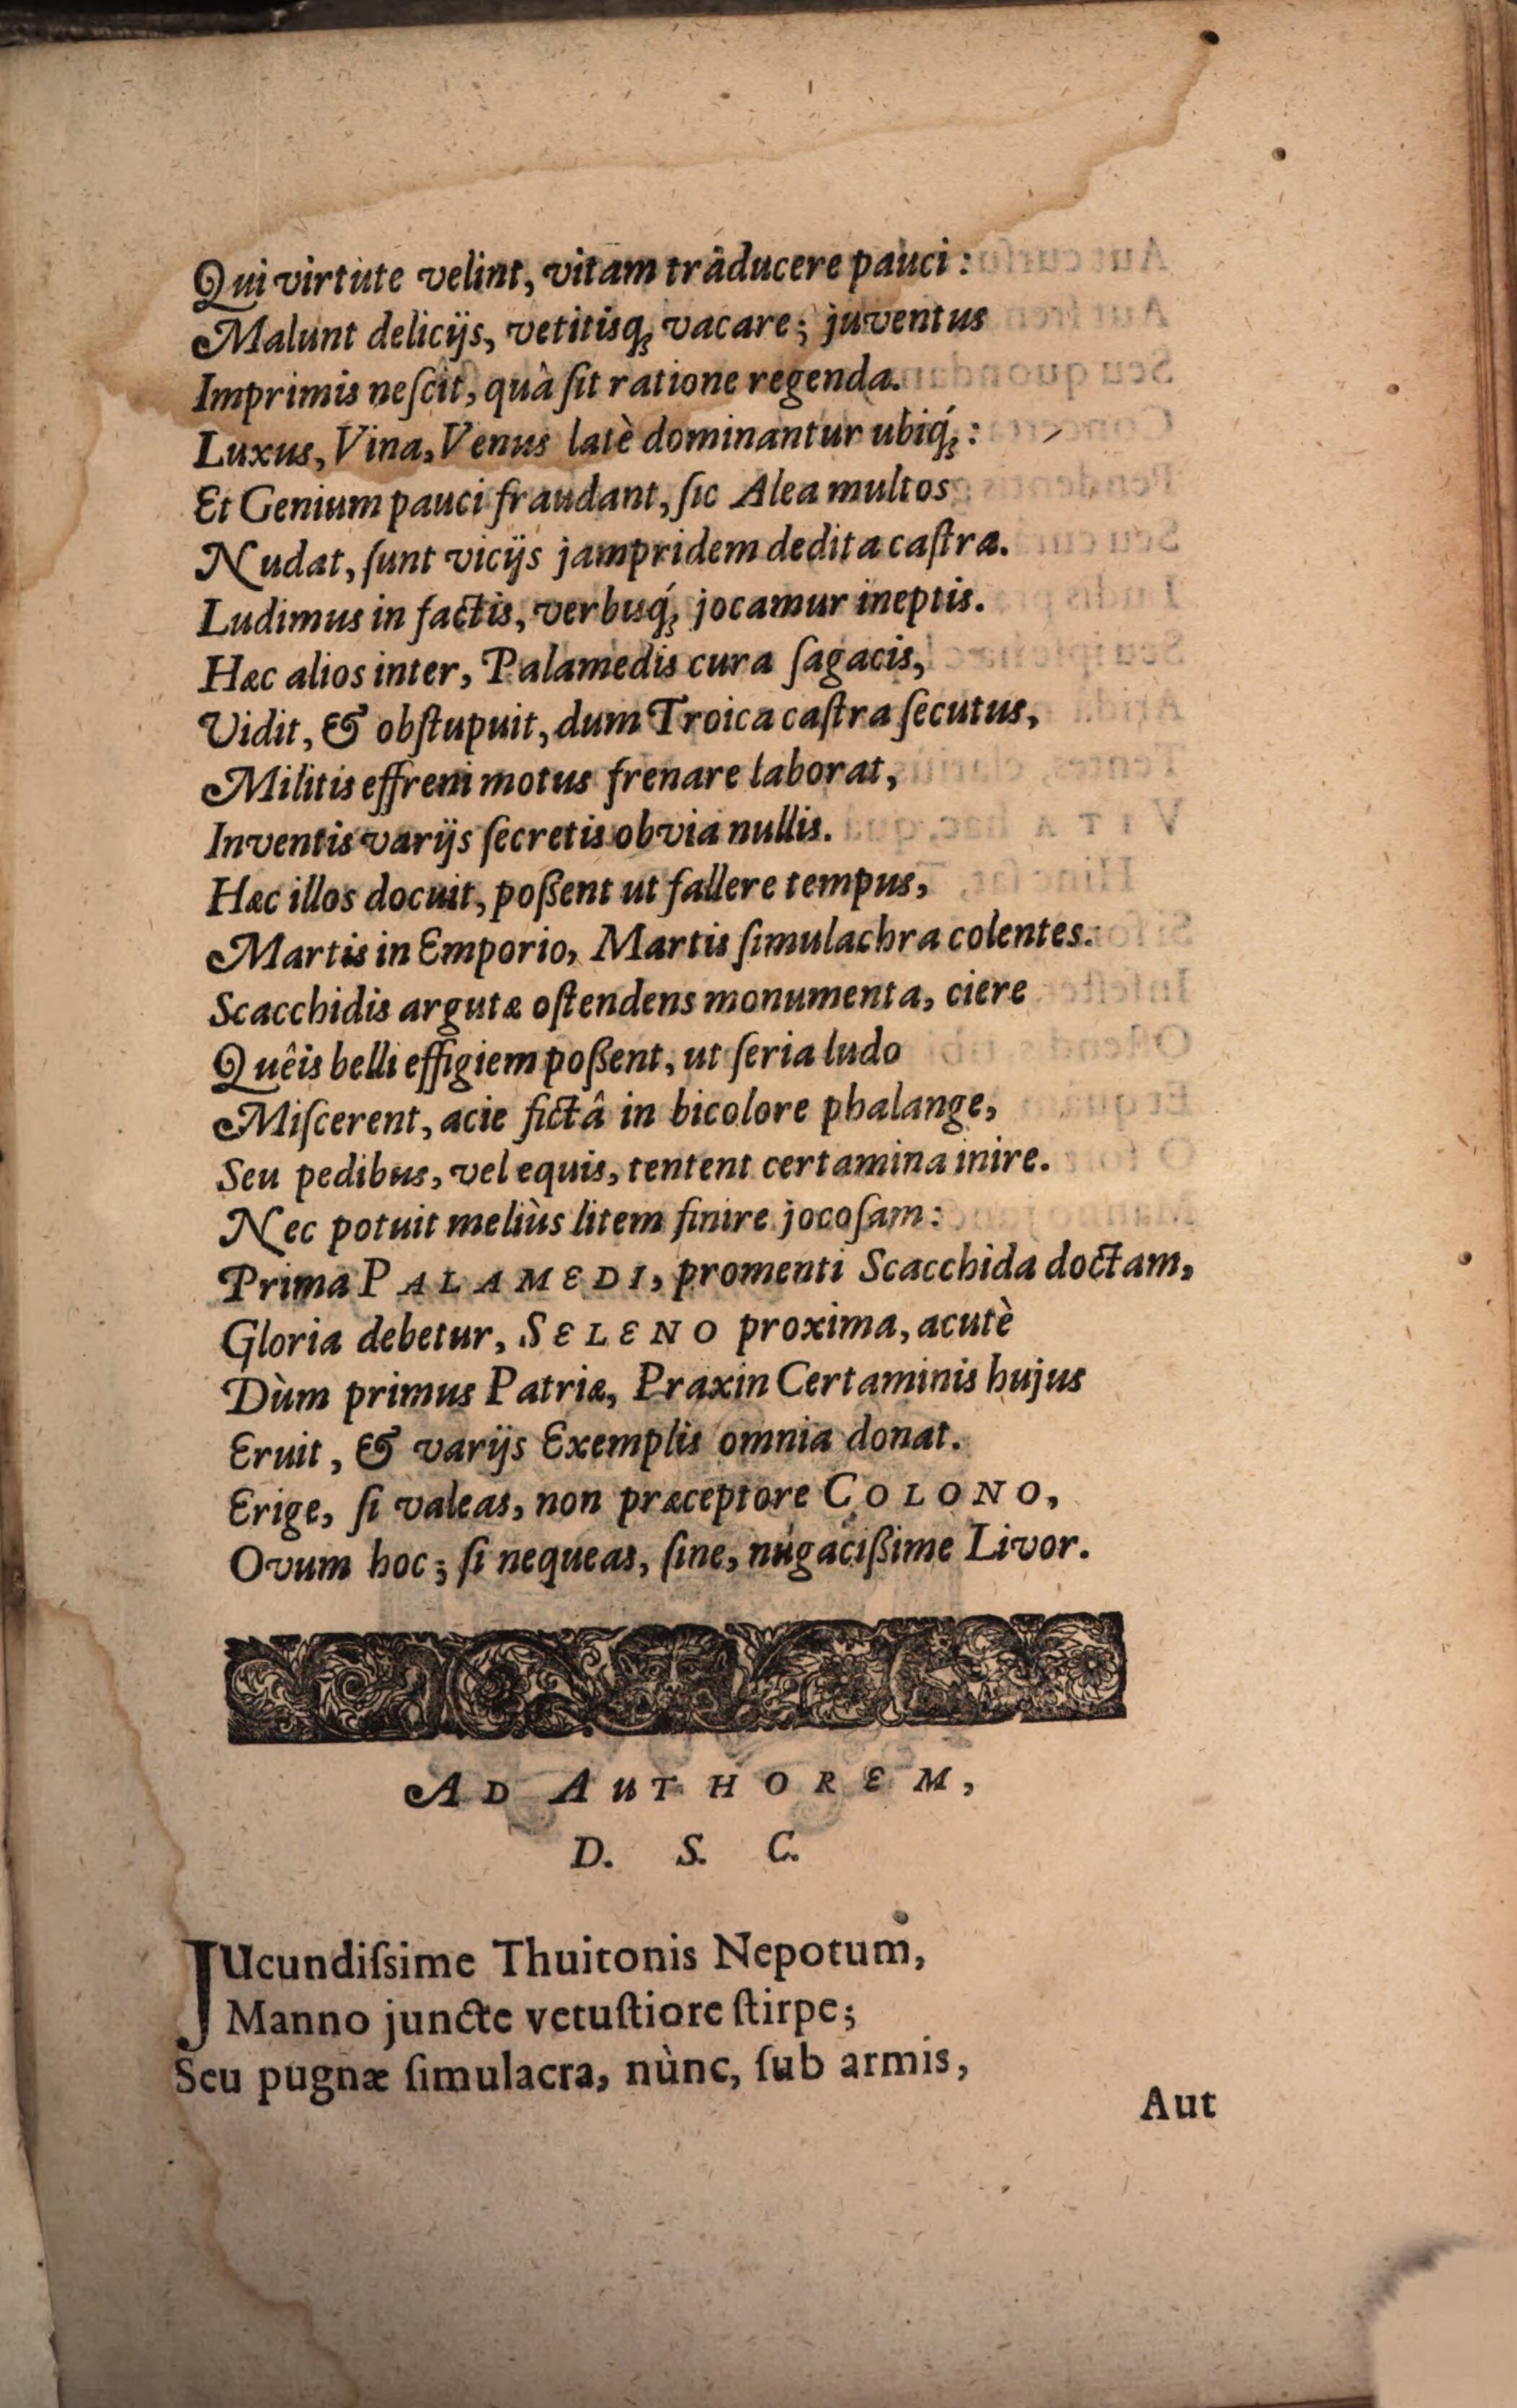 Qui virtute velint, vitam trâducere pauci:
Malunt delicijs, vetitisq́ꝫ vacare; juventus
Imprimis neſcit, quâ ſit ratione regenda.
Luxus, Vina, Venus latè dominantur ubiq́ꝫ:
Et Genium pauci fraudant, ſic Alea multos
Nudat, ſunt vicijs jampridem dedita caſtra.
Ludimus in factis, verbisq́ꝫ jocamur ineptis.
Hæc alios inter, Palamedis cura ſagacis,
Vidit, & obſtupuit, dum Troica caſtra ſecutus,
Militis effreni motus frenare laborat,
Inventis varijs ſecretis obvia nullis.
Hæc illos docuit, poßent ut fallere tempus,
Martis in Emporio, Martis ſimulachra colentes.
Scacchidis argutæ oſtendens monumenta, ciere
Quêis belli effigiem poßent, ut ſeria ludo
Miſcerent, acie fictâ in bicolore phalange,
Seu pedibus, vel equis, tentent certamina inire.
Nec potuit meliùs litem finire jocoſam:
Prima PALAMEDI, promenti Scacchida doctam,
Gloria debetur, SELENO proxima, acutè
Dùm primus Patriæ, Praxin Certaminis hujus
Eruit, & varijs Exemplis omnia donat.
Erige, ſi valeas, non præceptore COLONO,
Ovum hoc; ſi nequeas, ſine, nugacißime Livor.
AD AUTHOREM,
D. S. C.
JUcundiſsime Thuitonis Nepotum,
Manno juncte vetuſtiore ſtirpe;
Seu pugnæ ſimulacra, nùnc, ſub armis,
Aut